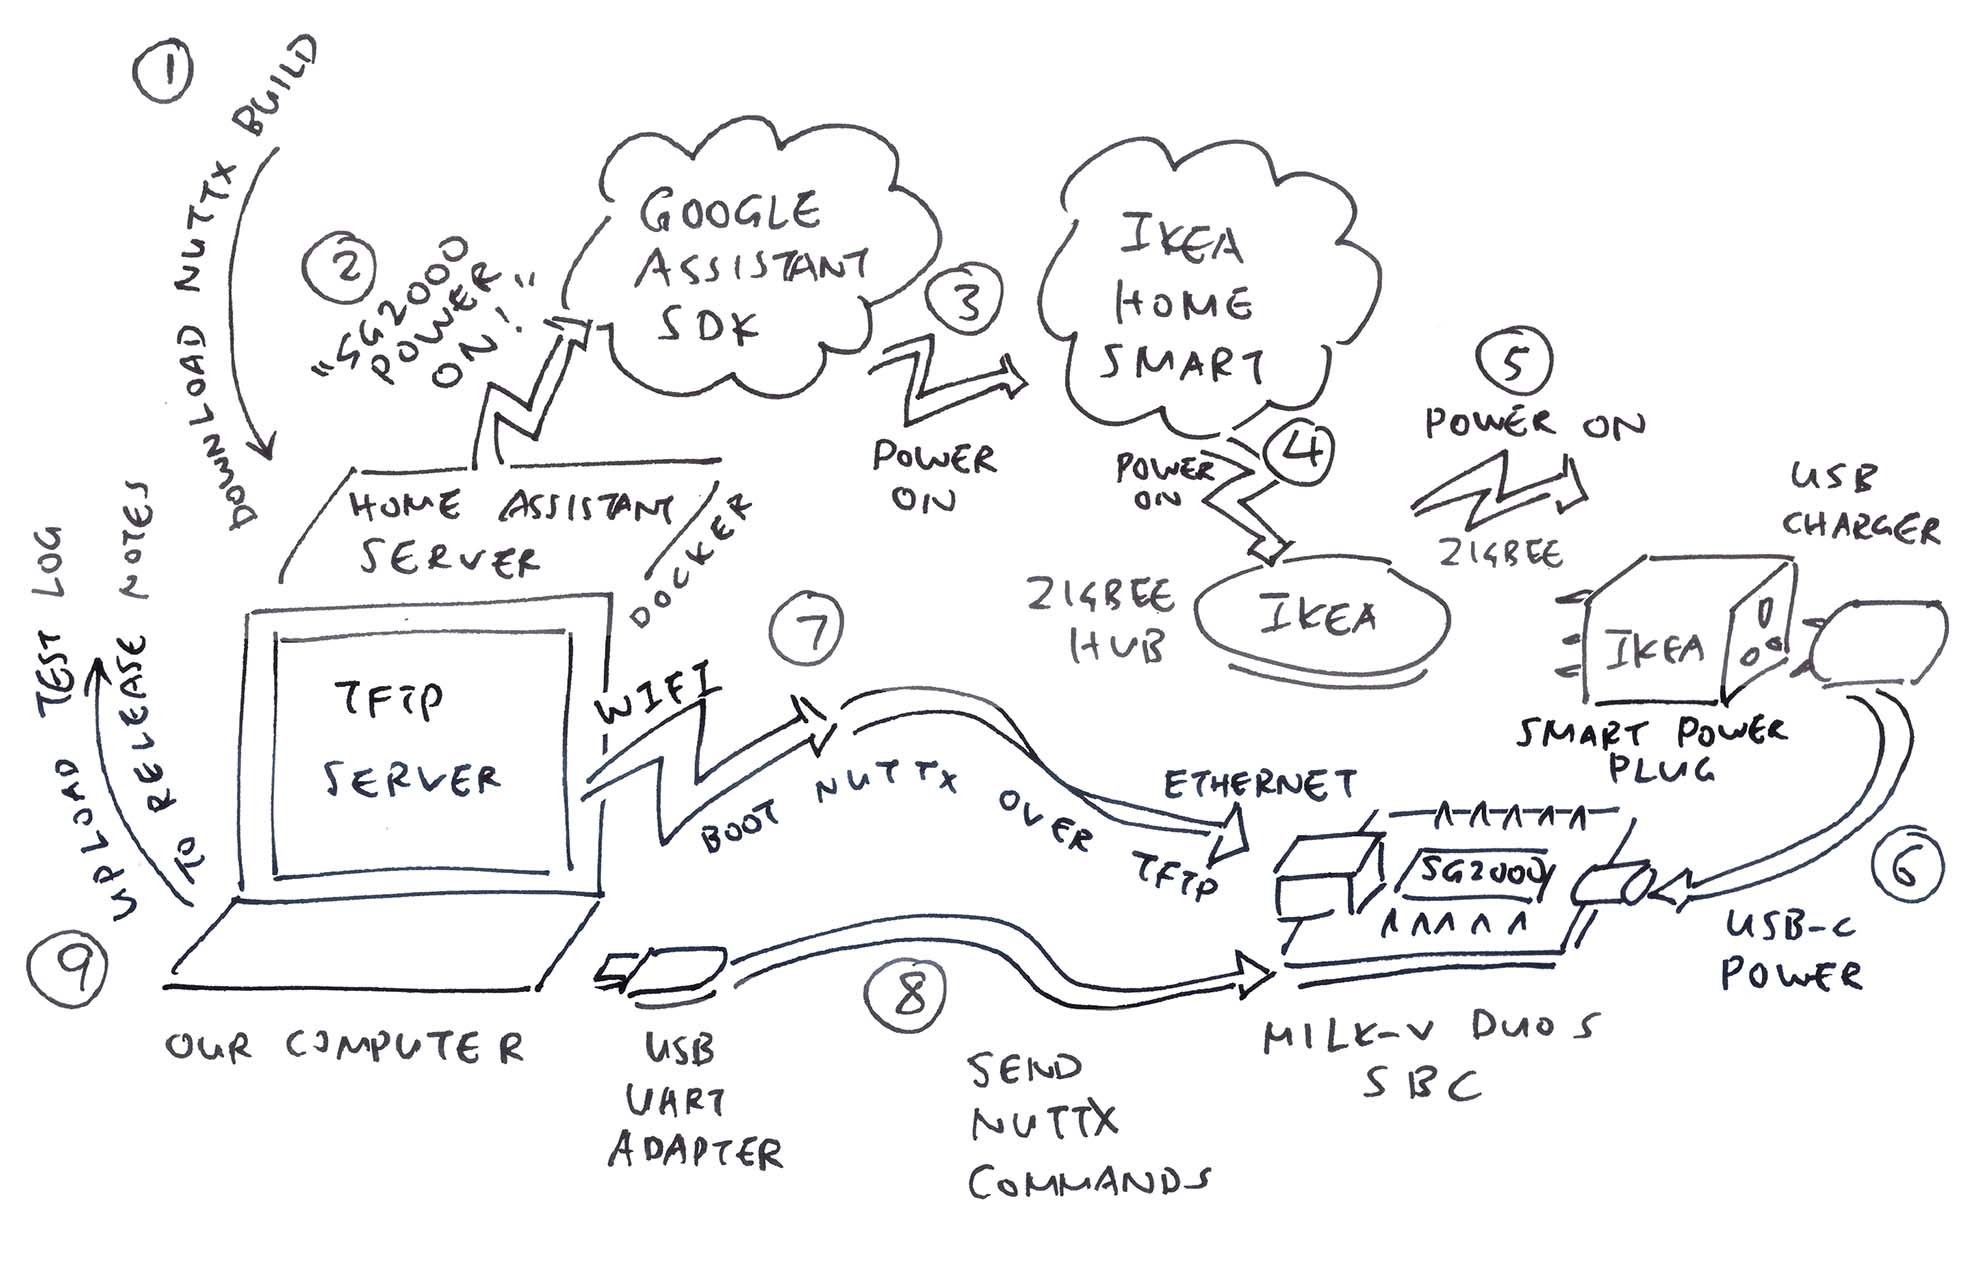 1
DOWNLOAD NUTTX BUILD
2
"SG2000
POWER
ON!"
GOOGLE
ASSISTANT
SDK
3
POWER
ON
IKEA
HOME
SMART
4
POWER
ON
5
POWER ON
ZIGBEE
USB
CHARGER
HOME ASSISTANT
SERVER
DOCKER
ZIGBEE
HUB
IKEA
IKEA
SMART POWER
PLUG
UPLOAD TEST LOG
TO RELEASE NOTES
TFTP
SERVER
7
WIFI
BOOT NUTTX OVER TFTP
ETHERNET
SG2000
6
USB-C
POWER
9
OUR COMPUTER
USB
UART
ADAPTER
8
SEND
NUTTX
COMMANDS
MILK-V DUO S
SBC